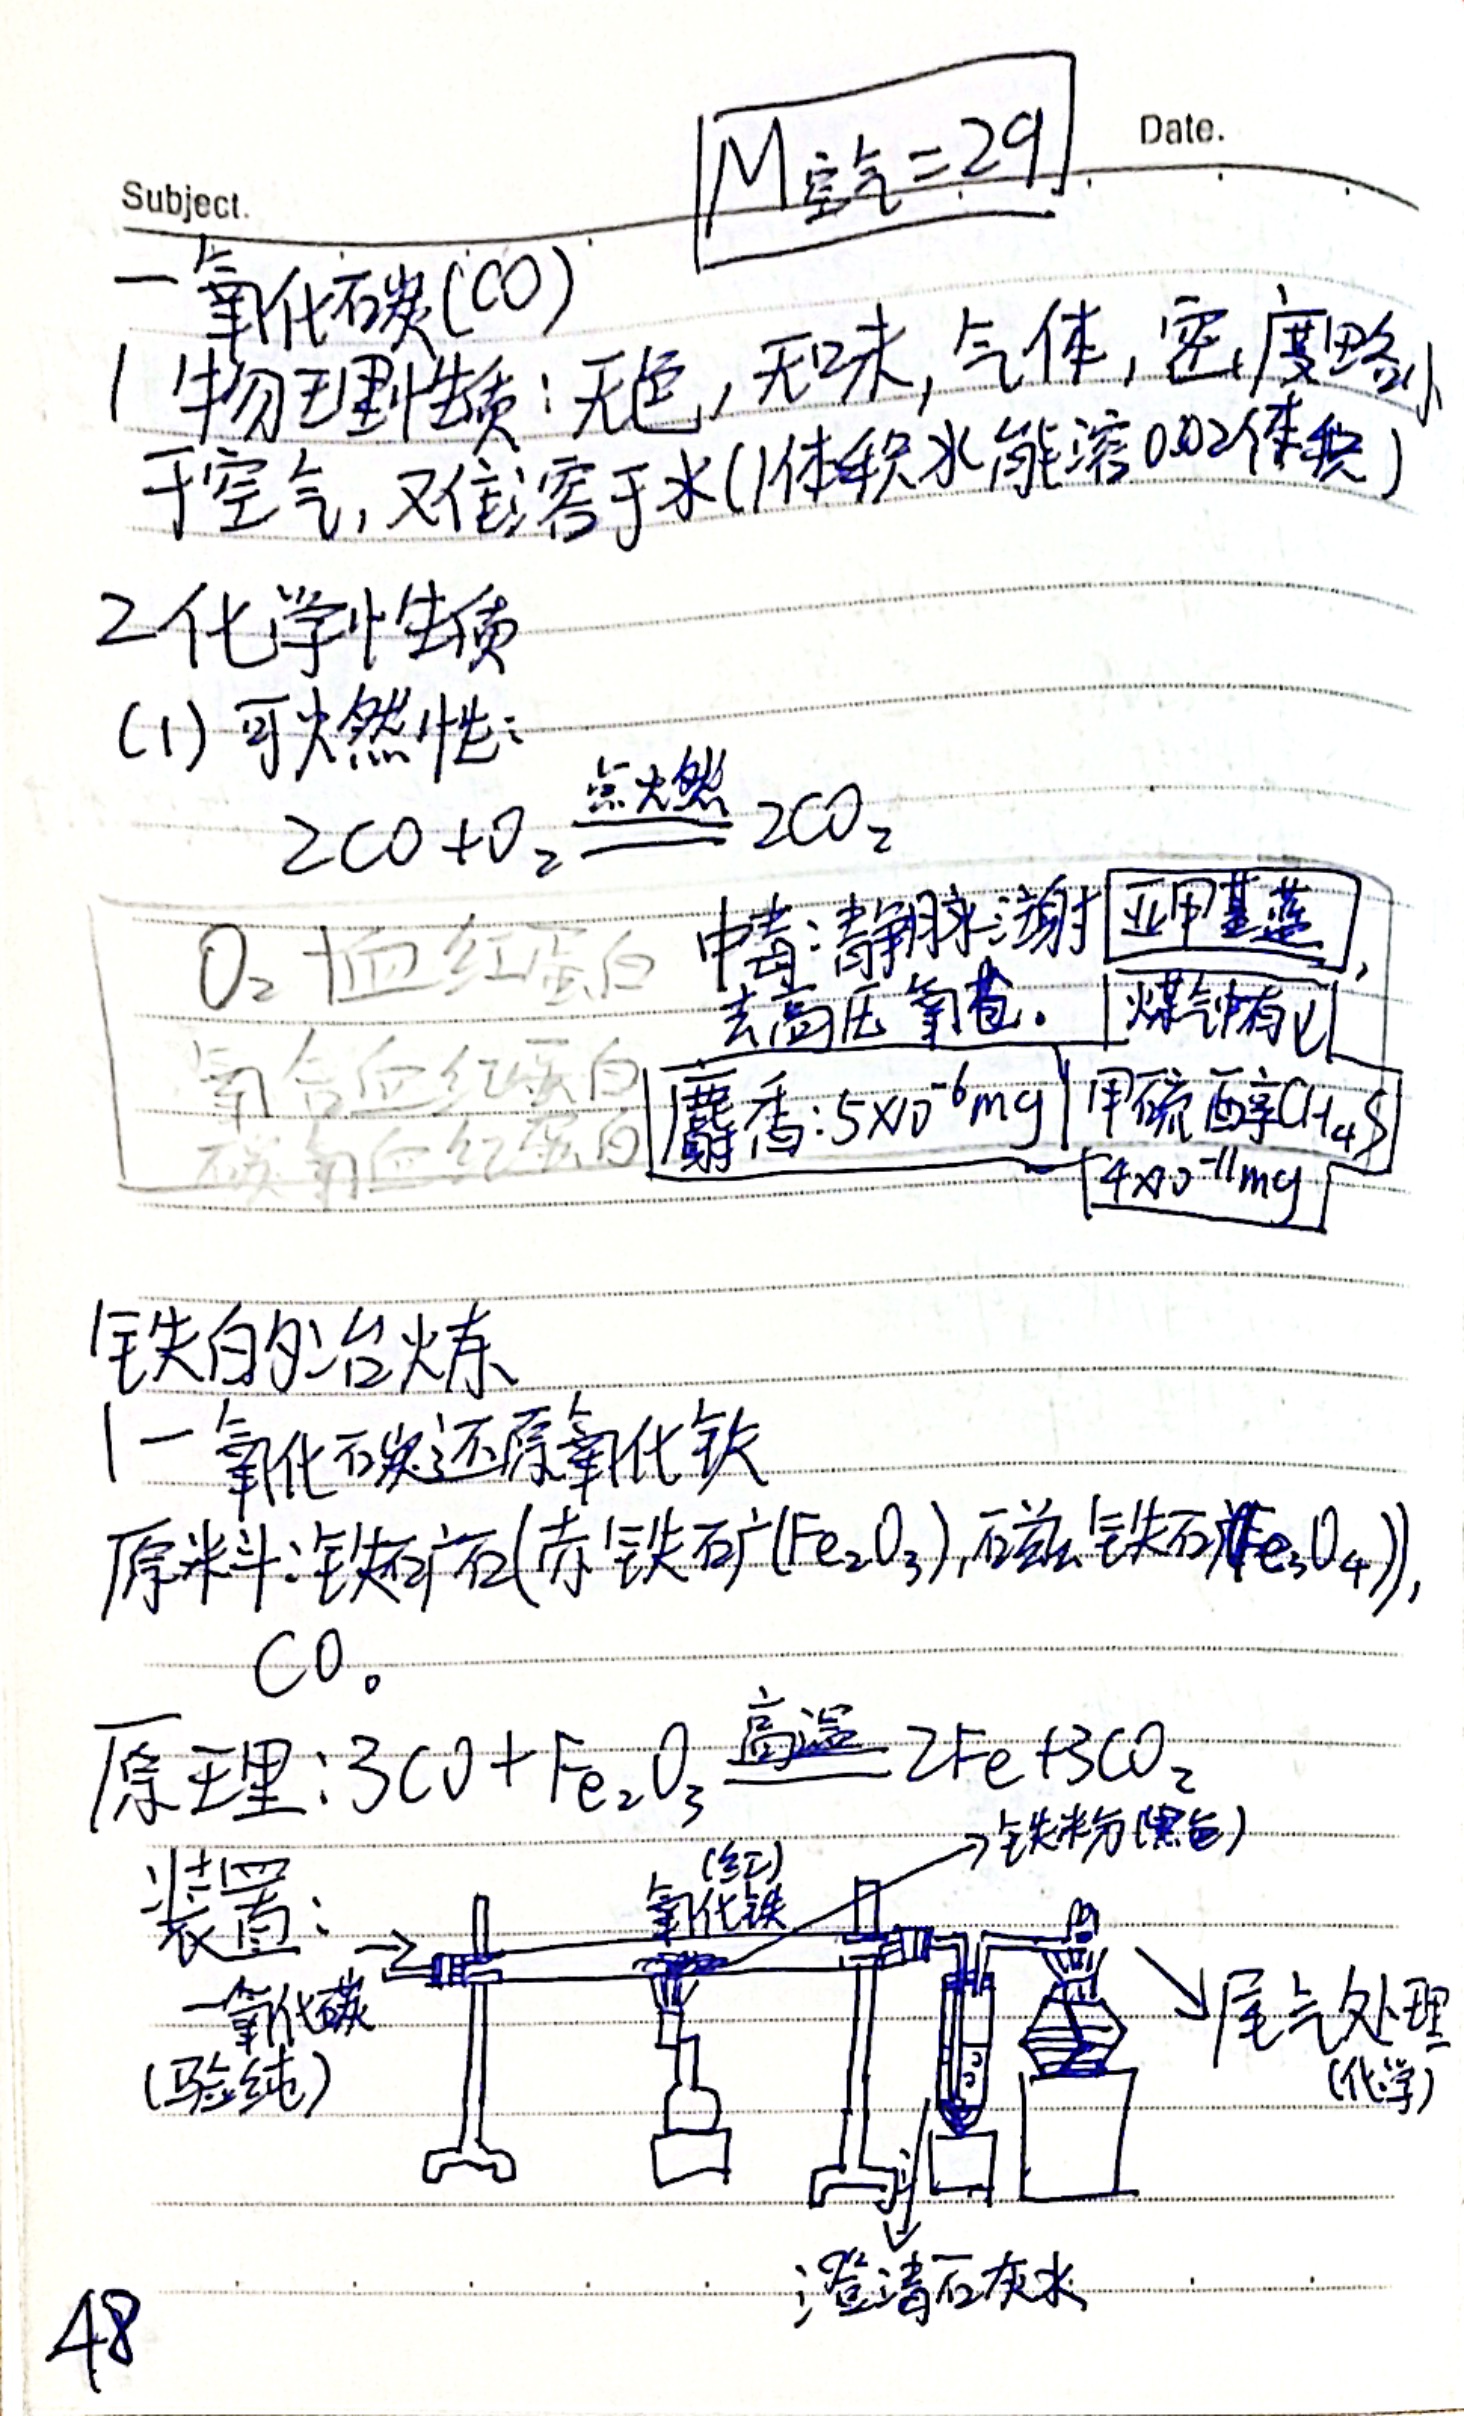 M空气=29
Date.
Subject.
一氧化碳(CO)
1 物理性质:无色,无味,气体,密度略小
于空气,又难溶于水(1体积水能溶0.02体积)
2 化学性质
(1)可燃性:
2CO+O₂ 点燃 2CO₂
O₂+血红蛋白
氧合血红蛋白
碳氧血红蛋白
中毒:静脉注射 亚甲基蓝,
去高压氧舱.
煤气中有
麝香:5×10⁻⁶mg
甲硫醇CH₄S
4×10⁻¹¹mg
铁的冶炼
1 一氧化碳还原氧化铁
原料:铁矿石(赤铁矿(Fe₂O₃),磁铁矿(Fe₃O₄)),
CO。
原理:3CO+Fe₂O₃ 高温 2Fe+3CO₂
装置:
(红)
氧化铁
→铁粉(黑色)
一氧化碳
(验纯)
尾气处理
(化学)
澄清石灰水
48